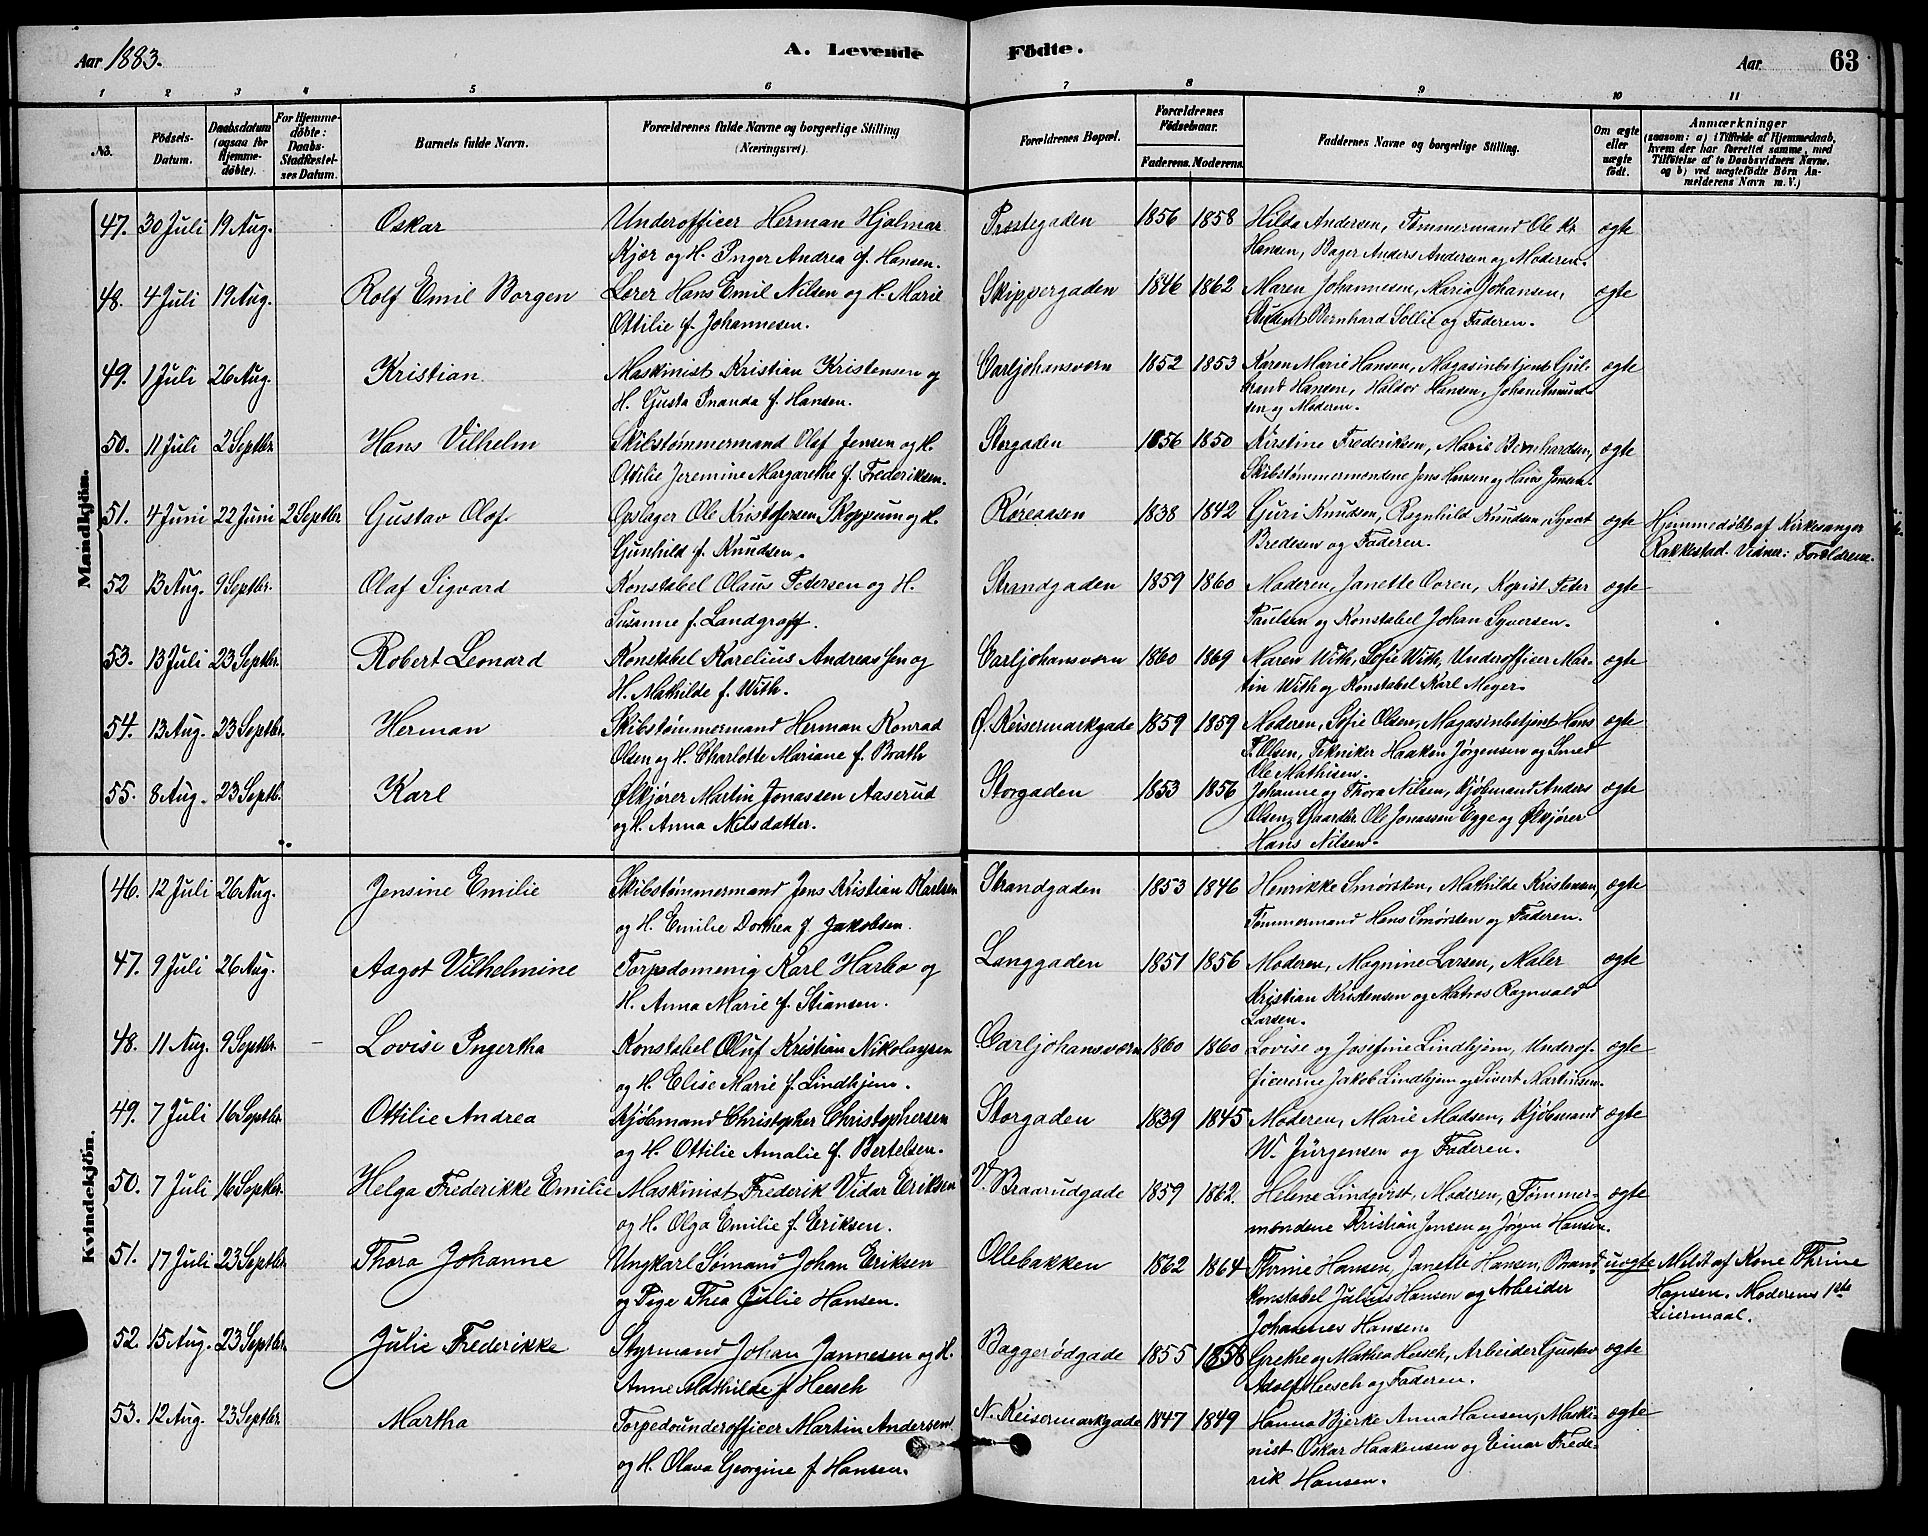 Aar 1883.
A. Levende Fødte.
Aar 63
1 2 3 4 5 6 7 8 9 10 11
No. Fødsels-Datum. Daabsdatum (ogsaa for Hjemmedøbte). For Hjemmedøbte: Daabs-Stadfæstelses Datum. Barnets fulde Navn. Forældrenes fulde Navne og borgerlige Stilling (Næringsvei). Forældrenes Bopæl. Forældrenes Fødselsaar. Faderens. Moderens. Faddernes Navne og borgerlige Stilling. Om ægte eller uægte født. Anmærkninger (saasom: a) i Tilfælde af Hjemmedaab, hvem der har forrettet samme, med Tilføielse af to Daabsvidners Navne, og b) ved uægtefødte Børn Anmelderens Navn m. V.)
Mandkjøn.
47. 30 Juli 19 Aug. Oskar Underofficer Herman Hjalmar Præstegaden 1856 1858 Hilda Andersen, Tømmermand Ole Kr. ægte
Kjær og H. Inger Andrea f. Hansen. Hansen, Bager Anders Andersen og Moderen.
48. 4 Juli 19 Aug. Rolf Emil Borgen Lærer Hans Emil Nilsen og H. Marie Skippergaden 1846 1862 Maren Johannesen, Maria Johansen, ægte
Ottilie f. Johannesen. Student Bernhard Sollie og Faderen.
49. 1 Juli 26 Aug. Kristian Maskinist Kristian Kristensen og Carljohansværn 1852 1853 Karen Marie Hansen, Magasinbetjent Gul- ægte
H. Gusta Inanda f. Hansen. brand Hansen, Haldor Hansen, Johan Amund-
sen og Moderen.
50. 11 Juli 2 Septbr. Hans Vilhelm Skibstømmermand Olaf Jensen og H. Storgaden 1856 1850 Kirstine Frederiksen, Marie Bernhardsen, ægte
Ottilie Jeremine Margarethe f. Frederiksen. Skibstømmermændene Jens Hansen og Hans Jensen.
51. 4 Juni 22 Juni 2 Septbr. Gustav Olaf. Opslager Ole Kristofersen Skoppum og H. Røreaasen 1838 1842 Guri Knudsen, Ragnhild Knudsen, Syvert ægte Hjemmedøbt af Kirkesanger
Gunhild f. Knudsen. Bredesen og Faderen. Rakkestad. Vidner: Forældrene.
52 13 Aug. 9 Septbr. Olaf Sigvard Konstabel Olaus Pedersen og H. Strandgaden 1859 1860 Moderen, Janette Ovren, Kopist Peter ægte
Susanne f. Landgraff. Paulsen og Konstabel Johan Syversen.
53. 13 Juli 23 Septbr. Robert Leonard Konstabel Karelius Andreassen og Carljohansværn 1860 1869 Maren With, Sofie With, Underofficer Mar- ægte
H. Mathilde f. With. tin With og Konstabel Karl Meyer.
54. 13 Aug. 23 Septbr. Herman Skibstømmermand Herman Konrad Ø. Keisermarkgade 1859 1859 Moderen, Sofie Olsen, Magasinbetjent Hans ægte
Olsen og H. Charlotte Mariane f. Brath F. Olsen, Tekniker Haaken Jørgensen og Smed
Ole Mathisen.
55. 8 Aug. 23 Septb. Karl Ølkjører Martin Jonassen Aaserud Storgaden 1853 1856 Johanne og Thora Nilsen, Kjøbmand Anders ægte
og H. Anna Nilsdatter. Olsen, Gaardbr. Ole Jonassen Egge og Ølkjører
Hans Nilsen.
Kvindekjøn.
46. 12 Juli 26 Aug. Jensine Emilie Skibstømmermand Jens Kristian Karlsen Strandgaden 1853 1846 Henrikke Smørsten, Mathilde Kristensen, ægte
og H. Emilie Dorthea f. Jakobsen. Tømmermand Hans Smørsten og Faderen.
47. 9 Juli 26 Aug. Aagot Vilhelmine Torpedomenig Karl Harbo og Langgaden 1851 1856 Moderen, Magnine Larsen, Maler ægte
H. Anna Marie f. Stiansen. Kristian Kristensen og Matros Ragnvald
Larsen.
48. 11 Aug. 9 Septbr. – Lovise Ingertha Konstabel Oluf Kristian Nikolaysen Carljohansværn 1860 1860 Lovise og Josefine Lindhjem, Underof- ægte
og H. Elise Marie f. Lindhjem. ficererne Jakob Lindhjem og Sivert Martinsen.
49. 7 Juli 16 Septbr. Ottilie Andrea Kjøbmand Christopher Christophersen Storgaden 1839 1845 Moderen, Marie Madsen, Kjøbmand ægte
og H. Ottilie Amalie f. Bertelsen. W. Jürgensen og Faderen.
50. 7 Juli 16 Septbr. Helga Frederikke Emilie Maskinist Frederik Vidar Eriksen V. Braarudgade 1859 1862. Helene Lindqvist, Moderen, Tømmer- ægte
og H. Olga Emilie f. Eriksen. mændene Kristian Jensen og Jørgen Hansen.
51. 17 Juli 23 Septbr. Thora Johanne Ungkarl Sømand Johan Eriksen Ollebakken 1862 1864 Thrine Hansen, Janette Hansen, Brand- uægte Meldt af Kone Thrine
og Pige Thea Julie Hansen. konstabel Julius Hansen og Arbeider Hansen. Moderens 1ste
Johannes Hansen. Leiermaal.
52. 15 Aug. 23 Septbr. Julie Frederikke Styrmand Johan Jannesen og H. Baggerødgade 1855 1858 Grethe og Mathea Heesch, Arbeider Gustav ægte
Anne Mathilde f. Heesch Adolf Heesch og Faderen.
53. 12 Aug. 23 Septbr. Martha Torpedounderofficer Martin Andersen N. Keisermarkgade 1847 1849 Hanna Bjerke Anna Hansen, Maski- ægte
og H. Olava Georgine f. Hansen. nist Oskar Haakensen og Einar Frede-
rik Hansen.